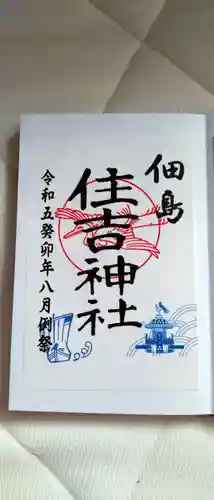 佃島
住吉神社
令和五癸卯年八月例祭